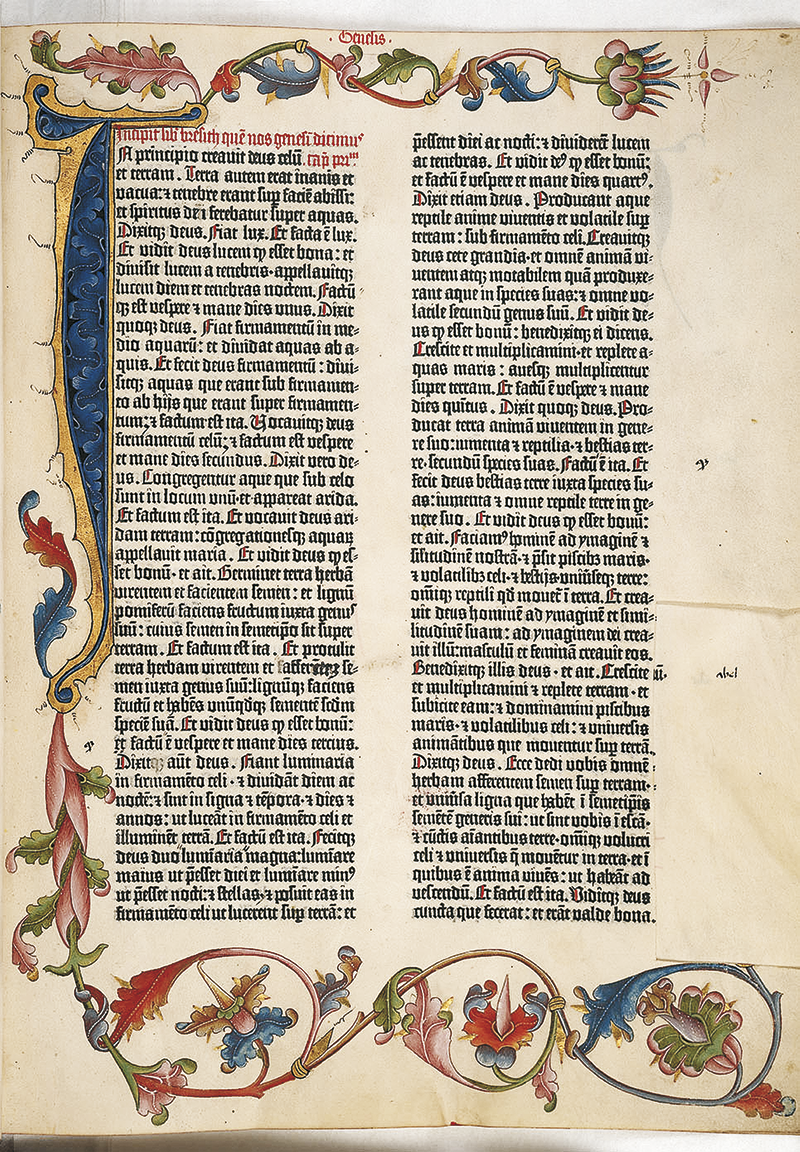 Genesis
Incipit lib̃ bresith quē nos genesī dicimus
In principio creauit deus celū cap̃ pr̃m
et terram. Terra autem erat inanis et
vacua: ⁊ tenebre erant sup̱ faciē abissi:
et spiritus dei ferebatur super aquas.
Dixitq̨ deus. Fiat lux. Et facta ē lux.
Et vidit deus lucem ꝙ esset bona: et
diuisit lucem a tenebris· appellauitq̨
lucem diem et tenebras noctem. Factū-
q̨ est vespere ⁊ mane dies vnus. Dixit
quoq̨ deus. Fiat firmamentū in me-
dio aquarū: et diuidat aquas ab a-
quis. Et fecit deus firmamentū: diui-
sitq̨ aquas que erant sub firmamen-
to ab hijs que erant super firmamen-
tum: ⁊ factum est ita. Vocauitq̨ deus
firmamentū celū: ⁊ factum est vespere
et mane dies secundus. Dixit vero de-
us. Congregentur aque que sub celo
sunt in locum vnū· et appareat arida.
Et factum est ita. Et vocauit deus ari-
dam terram: cōgregationesq̨ aquaꝝ
appellauit maria. Et vidit deus ꝙ es-
set bonū· et ait. Germinet terra herbā
virentem et facientem semen: et lignū
pomiferū faciens fructum iuxta genus
suū: cuius semen in semetipso sit super
terram. Et factum est ita. Et protulit
terra herbam virentem et afferētez se-
men iuxta genus suū: lignūq̨ faciens
fructū et habēs vnūqdq̨ sementē scdm
speciē suā. Et vidit deus ꝙ esset bonū:
et factū ē vespere et mane dies tercius.
Dixitq̨ aūt deus. Fiant luminaria
in firmamēto celi· ⁊ diuidāt diem ac
noctē: ⁊ sint in signa ⁊ tēpora· ⁊ dies ⁊
annos: ut luceāt in firmamēto celi et
illuminēt terrā. Et factū est ita. Fecitq̨
deus duo lumīaria magna: lumīare
maius ut p̄esset diei et lumīare minus
ut p̄esset nocti: ⁊ stellas· ⁊ posuit eas in
firmamēto celi ut lucerent sup̱ terrā: et
p̄essent diei ac nocti: ⁊ diuiderēt lucem
ac tenebras. Et vidit deus ꝙ esset bonū:
et factū ē vespere et mane dies quartus.
Dixit etiam deus. Producant aque
reptile anime viuentis et volatile sup̱
terram: sub firmamēto celi. Creauitq̨
deus cete grandia· et omnē animā vi-
uentem atq̨ motabilem quā produxe-
rant aque in species suas: ⁊ omne vo-
latile secundū genus suū. Et vidit de-
us ꝙ esset bonū: benedixitq̨ ei dicens.
Crescite et multiplicamini· et replete a-
quas maris: auesq̨ multiplicentur
super terram. Et factū ē vespere ⁊ mane
dies quītus. Dixit quoq̨ deus. Pro-
ducat terra animā viuentem in gene-
re suo: iumenta ⁊ reptilia· ⁊ bestias ter-
re· secundū species suas. Factū ē ita. Et
fecit deus bestias terre iuxta species su-
as: iumenta ⁊ omne reptile terre in ge-
nere suo. Et vidit deus ꝙ esset bonū:
et ait. Faciamus hominē ad ymaginē ⁊
similitudinē nostrā· ⁊ p̄sit piscibz maris·
⁊ volatilibz celi· ⁊ bestijs vniūseq̨ terre:
omīq̨ reptili qd mouet ī terra. Et crea-
uit deus hominē ad ymaginē et simi-
litudinē suam: ad ymaginem dei crea-
uit illū: masculū et feminā creauit eos.
Benedixitq̨ illis deus· et ait. Crescite
et multiplicamini ⁊ replete terram· et
subicite eam: ⁊ dominamini piscibus
maris· ⁊ volatilibus celi: ⁊ uniuersis
animātibus que mouentur sup̱ terrā.
Dixitq̨ deus. Ecce dedi vobis omnē
herbam afferentem semen sup̱ terram·
et vniūsa ligna que habēt ī semetip̄is
semētē generis sui: ut sint vobis ī escā·
⁊ cūctis aīantibus terre· omīq̨ volucri
celi ⁊ vniuersis q̄ mouētur in terra· et ī
quibus ē anima viuēs: ut habeāt ad
vescendū. Et factū est ita. Viditq̨ deus
cuncta que fecerat: et erāt valde bona.